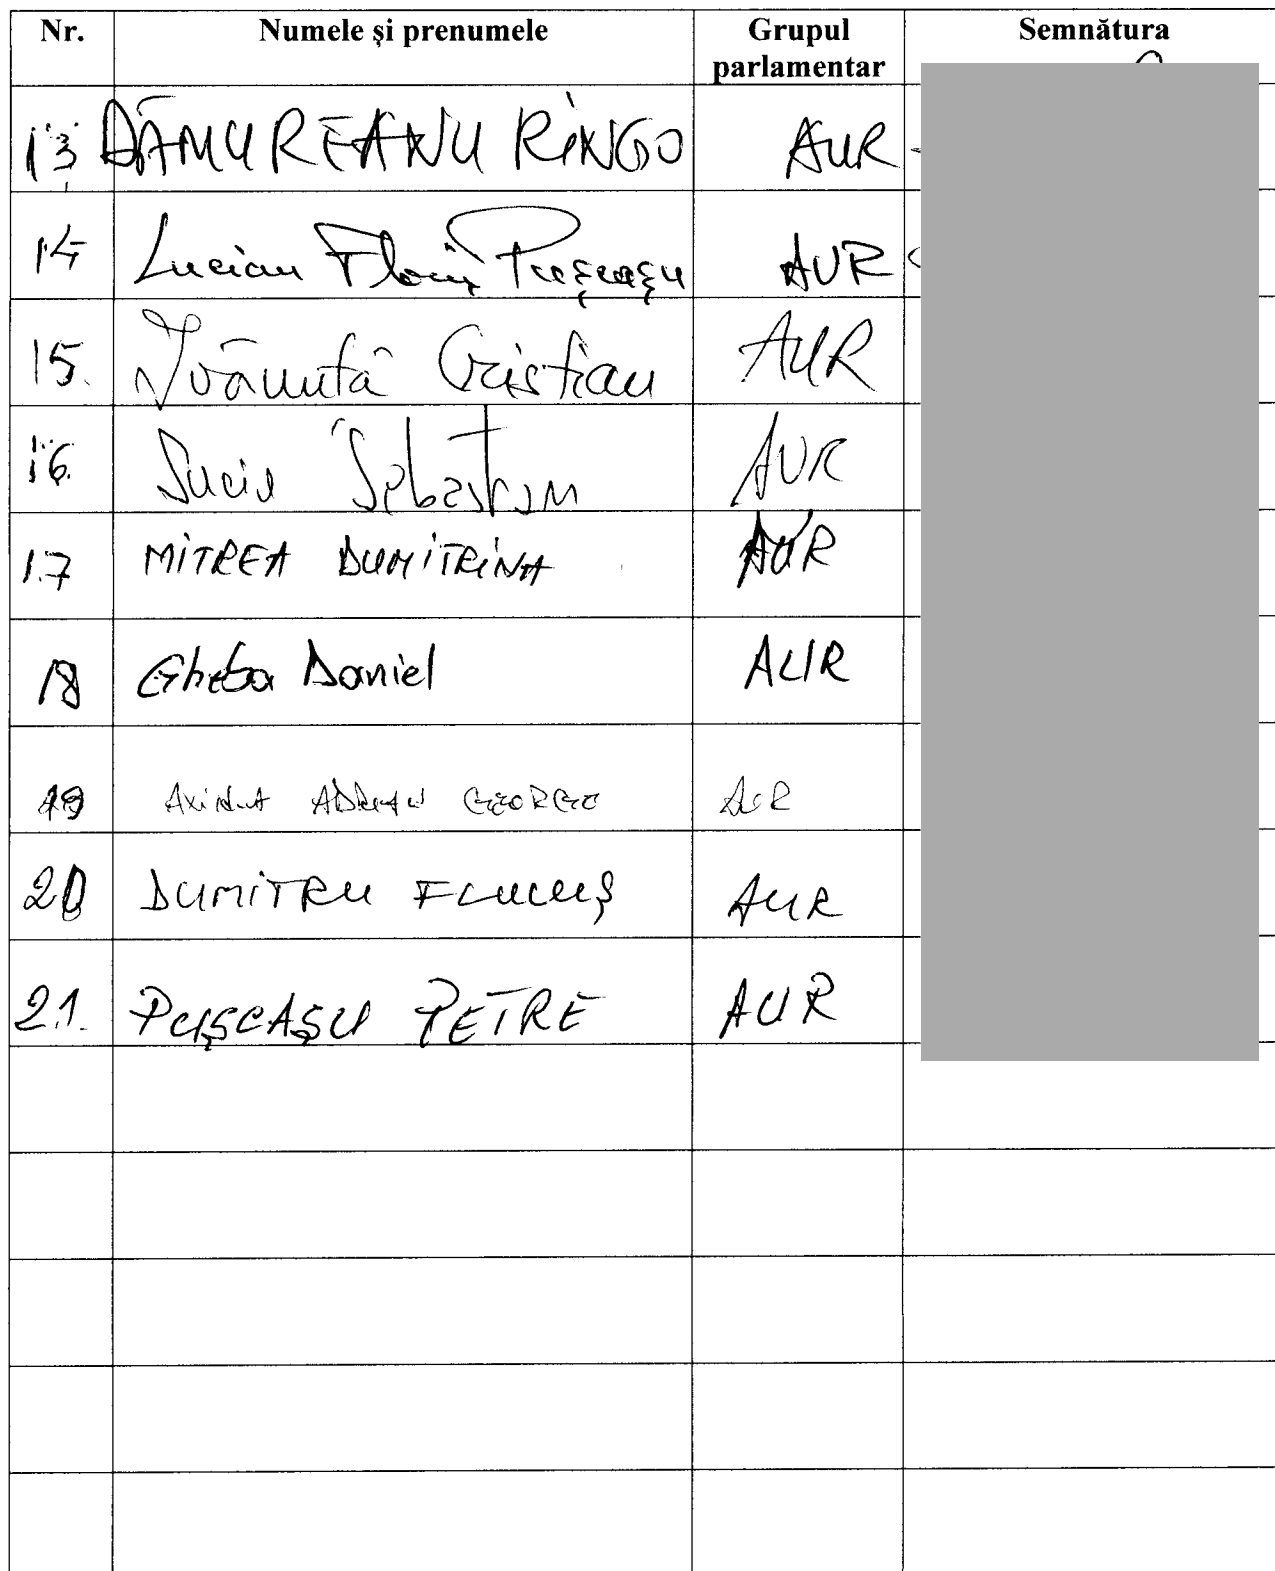 Nr. Numele și prenumele Grupul parlamentar Semnătura
13 DĂMUREANU RINGO AUR
14 Lucian Florin Pușcașu AUR
15. Ivănuță Cristian AUR
16. Suciu Sebastian AUR
17 MITREA DUMITRINA AUR
18 Gheba Daniel AUR
19 AXINIA ADRIAN GEORGE AUR
20 DUMITRU AUR
21. PUȘCAȘU PETRE AUR